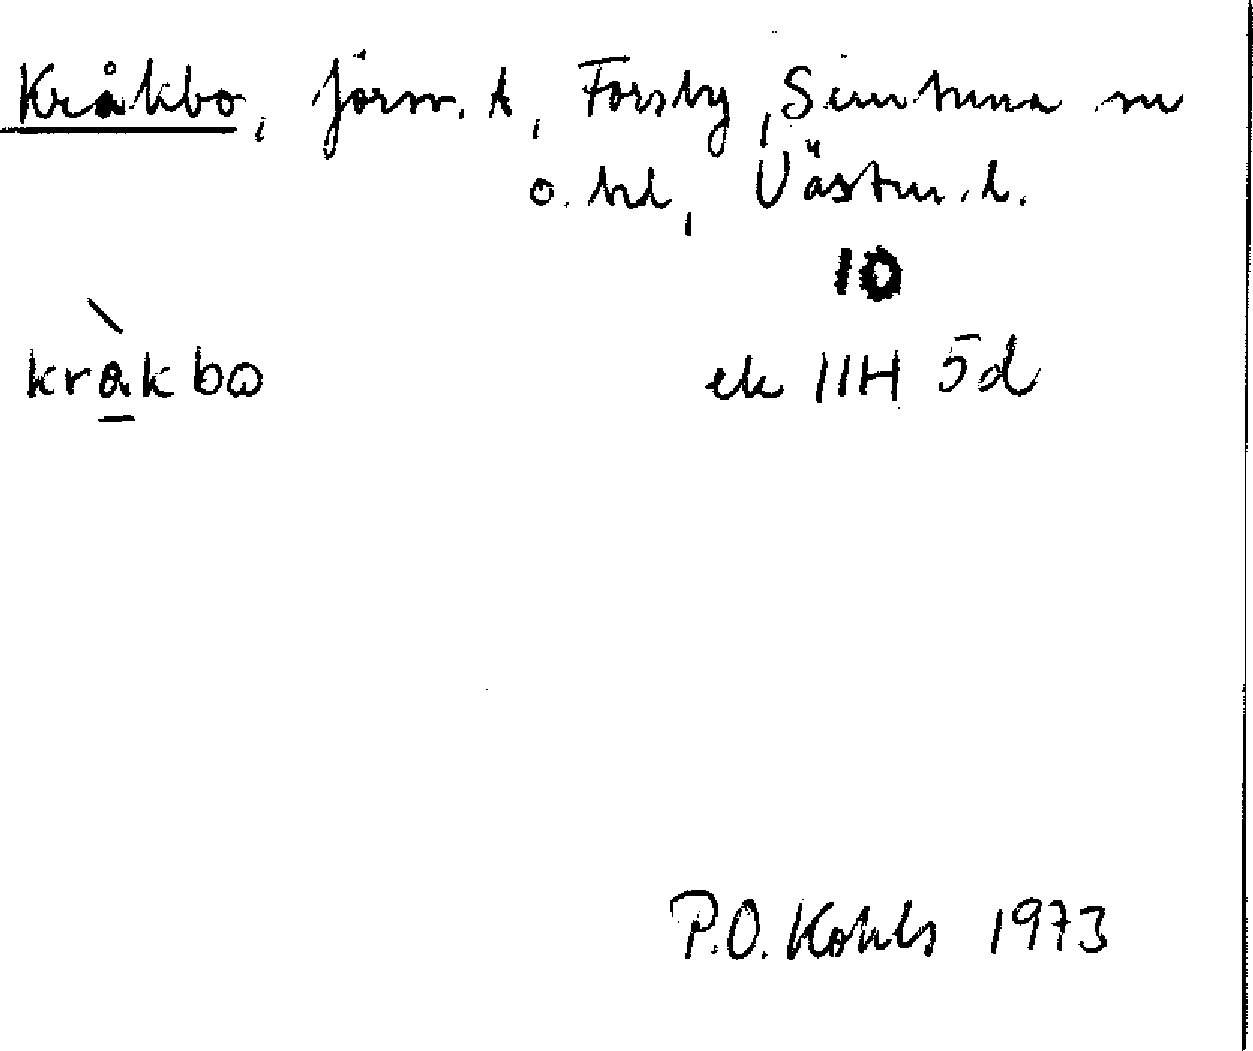 Kråkbo, försv. t, Forsby, Simtuna sn
o. hd, Västm. l.
10
kråkbo
ek 11H 5d
P.O. Kohls 1973